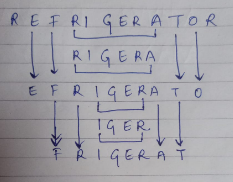 R E F R I G E R A T O R
R I G E R A
E F R I G E R A T O
I G E R.
F R I G E R A T